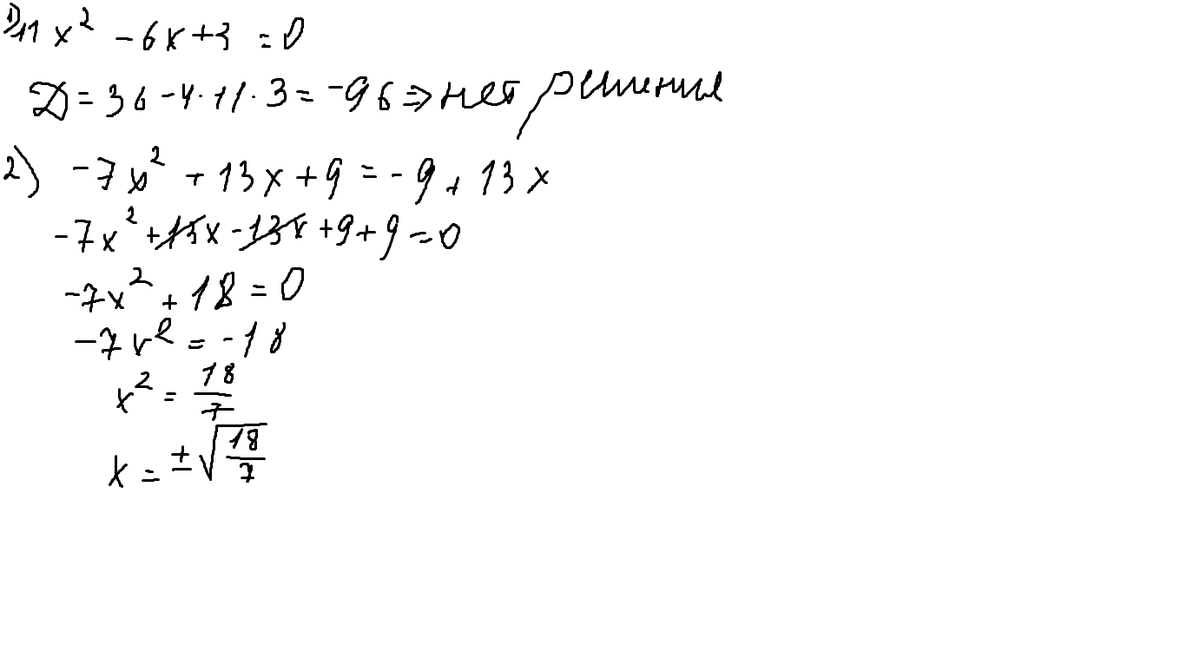 1) 11x² - 6x + 3 = 0
Д = 36 - 4 · 11 · 3 = -96 ⇒ нет решения
2) -7x² + 13x + 9 = -9 + 13x
-7x² + 13x - 13x + 9 + 9 = 0
-7x² + 18 = 0
-7x² = -18
x² = 18/7
x = ±√(18/7)